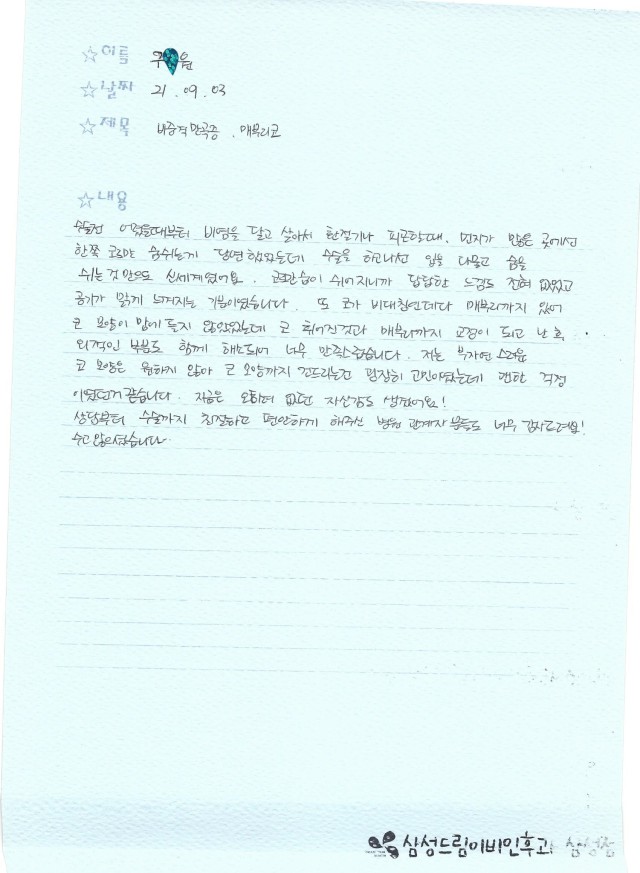 ☆이름 구 원
☆날짜 21. 09. 03
☆제목 비중격만곡증, 매부리코
☆내용
수술전 어렸을때부터 비염을 달고 살아서 환절기나 피곤할때, 먼지가 많은 곳에선
한쪽 코로만 숨쉬는게 당연했었는데 수술을 하고나선 입을 다물고 숨을
쉬는것만으로 신세계였어요. 코로만 숨이 쉬어지니까 답답한 느낌도 전혀 없었고
공기가 맑게 느껴지는 기분이었습니다. 또 코가 비대칭인데다 매부리까지 있어
코 모양이 맘에 들지 않았었는데 코 휘어진것과 매부리까지 교정이 되고 난 후
외적인 부분도 함께 해소되어 너무 만족스럽습니다. 저는 부자연스러운
코 모양은 원하지 않아 코 모양까지 건드리는건 굉장히 고민이였는데 괜한 걱정
이였던거 같습니다. 지금은 오히려 없던 자신감도 생겼어요!
상담부터 수술까지 친절하고 편안하게 해주신 병원 관계자 분들도 너무 감사드려요!
수고 많으셨습니다.
삼성드림이비인후과